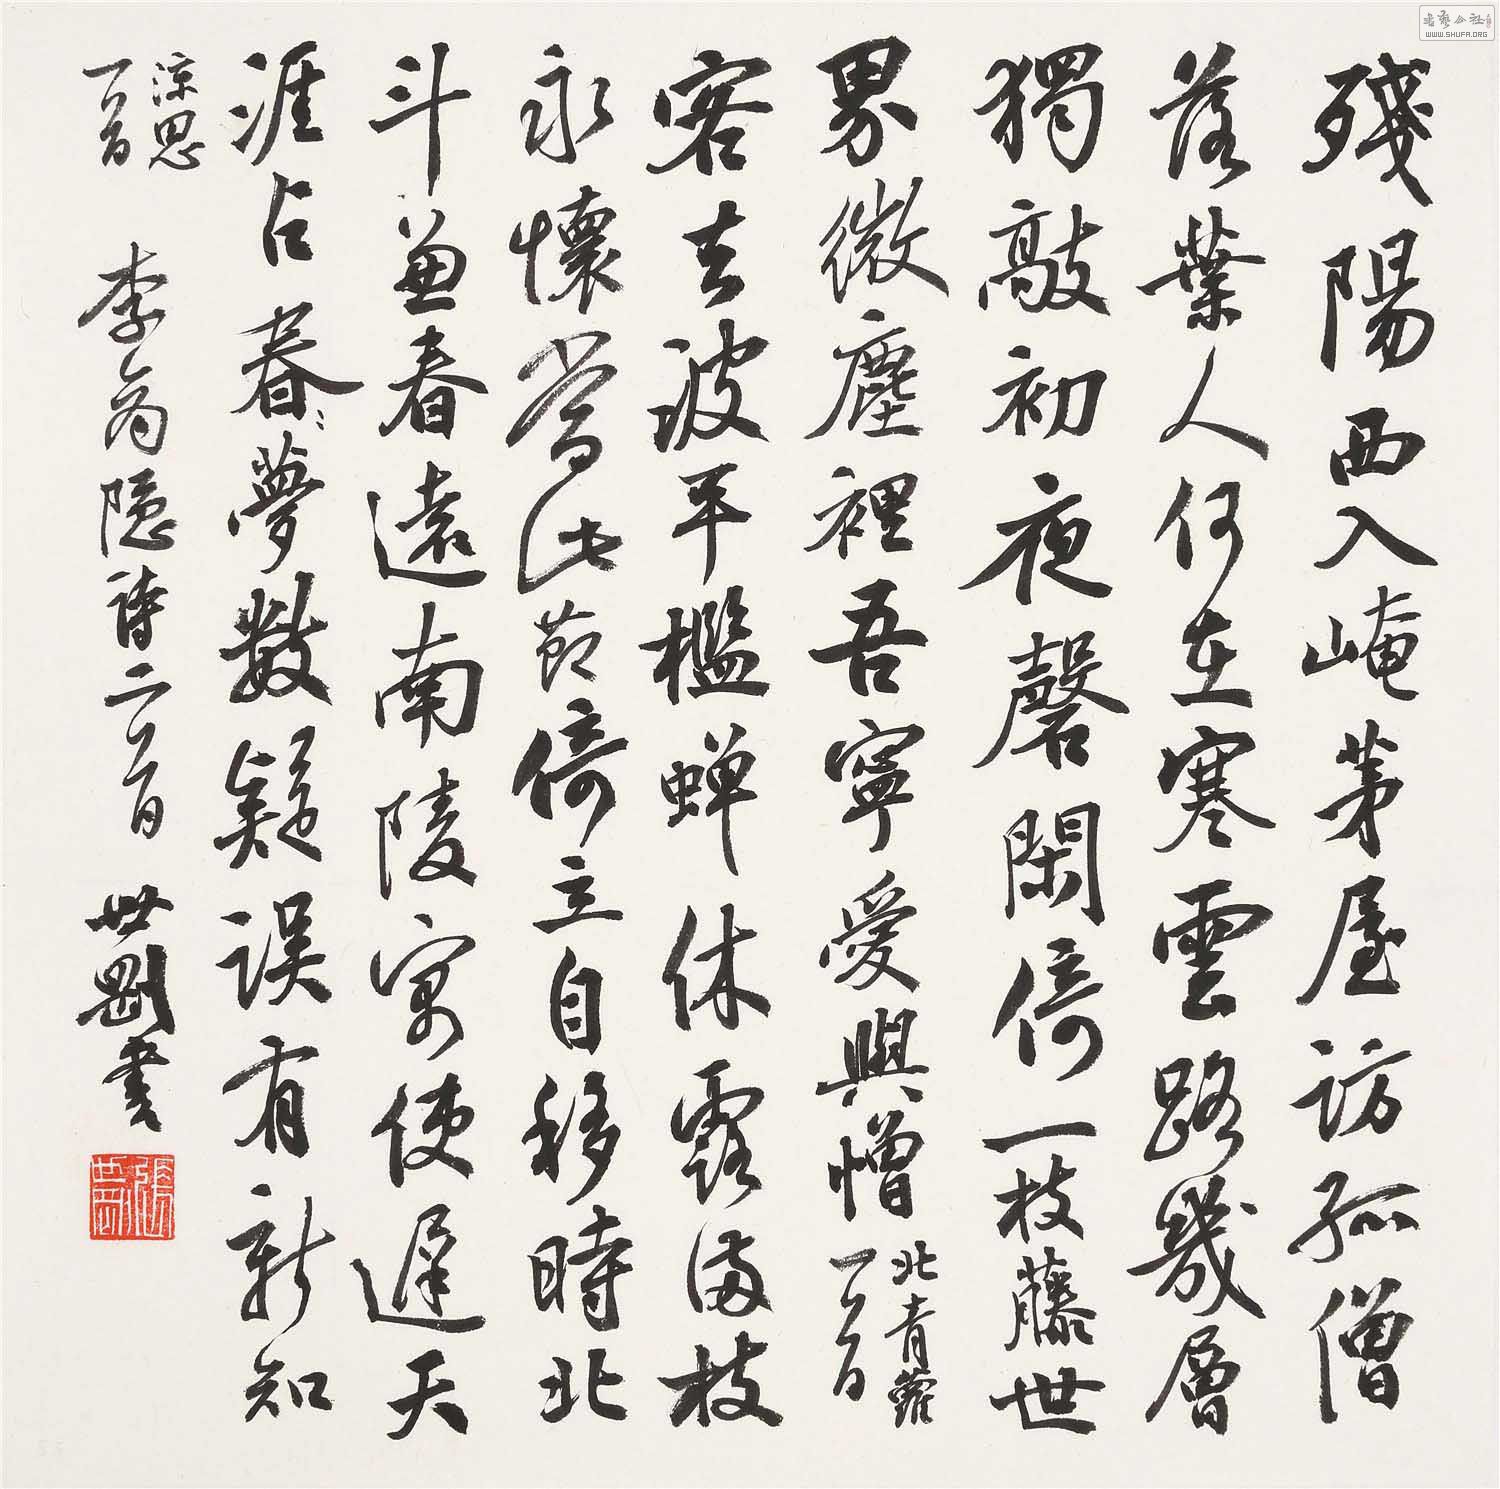 殘陽西入崦茅屋訪孤僧
落葉人何在寒雲路幾層
獨敲初夜磬閑倚一枝藤世
界微塵裡吾寧愛與憎
北青蘿
一首
客去波平檻蟬休露滿枝
永懷當此節倚立自移時北
斗兼春遠南陵寓使遲天
涯占春夢數疑誤有新知
涼思
一首
李商隱詩二首 世剛書
張世剛
書藝公社
WWW.SHUFA.ORG